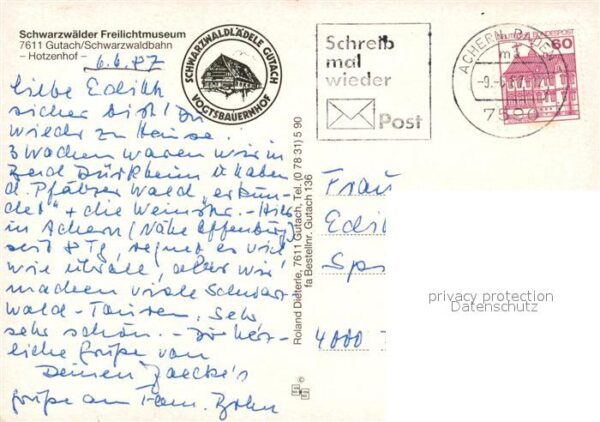 Schwarzwälder Freilichtmuseum
7611 Gutach/Schwarzwaldbahn
– Hotzenhof –
6.6.87
SCHWARZWALDLÄDELE GUTACH
VOGTSBAUERNHOF
Liebe Edith
sicher bist Du
wieder zu Hause.
3 Wochen waren wir in
Bad Dürkheim u. haben
d. Pfälzer Wald "erkun-
det" + die Weinstr. - Hier
in Achern (Nähe Offenburg)
seit 8 Tg. regnet es viel
wie überall, aber wir
machen viele Schwarz-
wald-Touren. Sehr
sehr schön. - Die herz-
liche Grüße von
Deinen
Grüße an Fam.
Roland Dieterle, 7611 Gutach, Tel. (0 78 31) 5 90
fa Bestellnr. Gutach 136
Schreib
mal
wieder
Post
ACHERN, BADEN
7590
DEUTSCHE BUNDESPOST
60
Frau
Edith
Sp
4000
privacy protection
Datenschutz